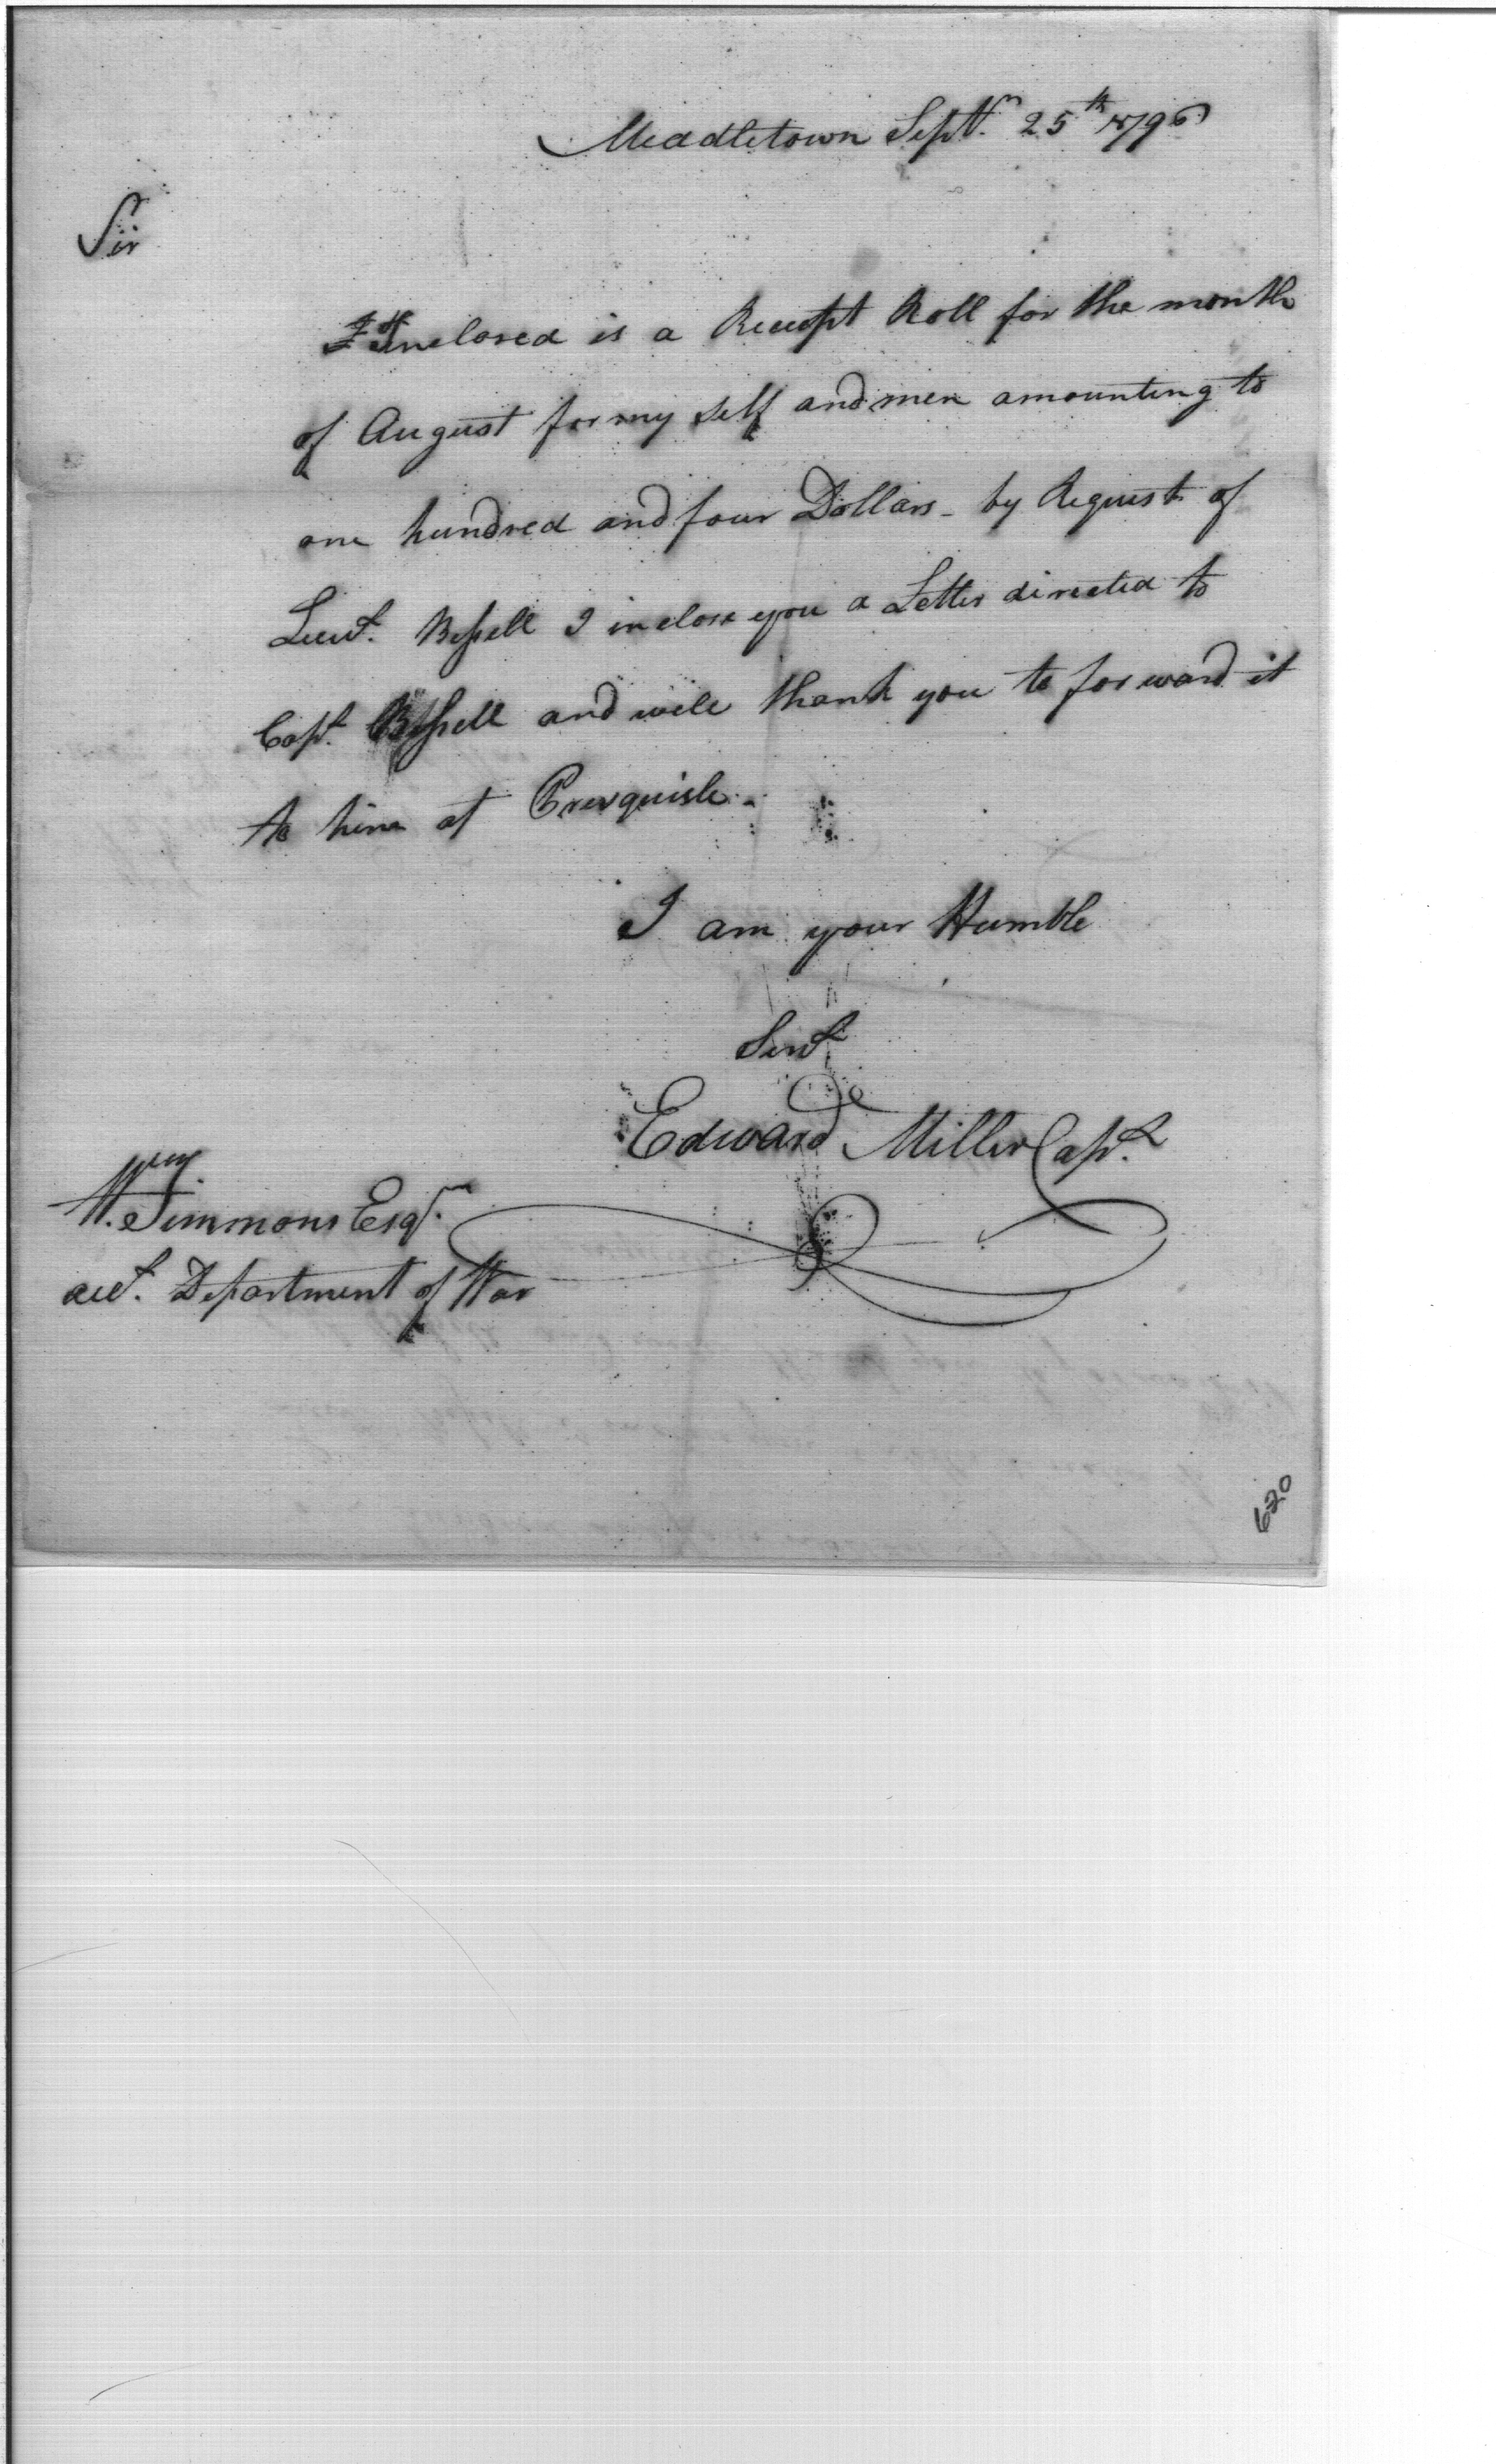 Middletown Sept.r 25th 1796
Sir
Inclosed is a Receipt Roll for the month
of August for my self and men amounting to
one hundred and four Dollars - by Request of
Lieut. Bissell I inclose you a Letter directed to
Capt. Bissell and will thank you to forward it
to him at Presquisle.-
I am your Humble
Servt
Edward Miller Capt.
Wm. Simmons Esqr.
acct. Department of War
620